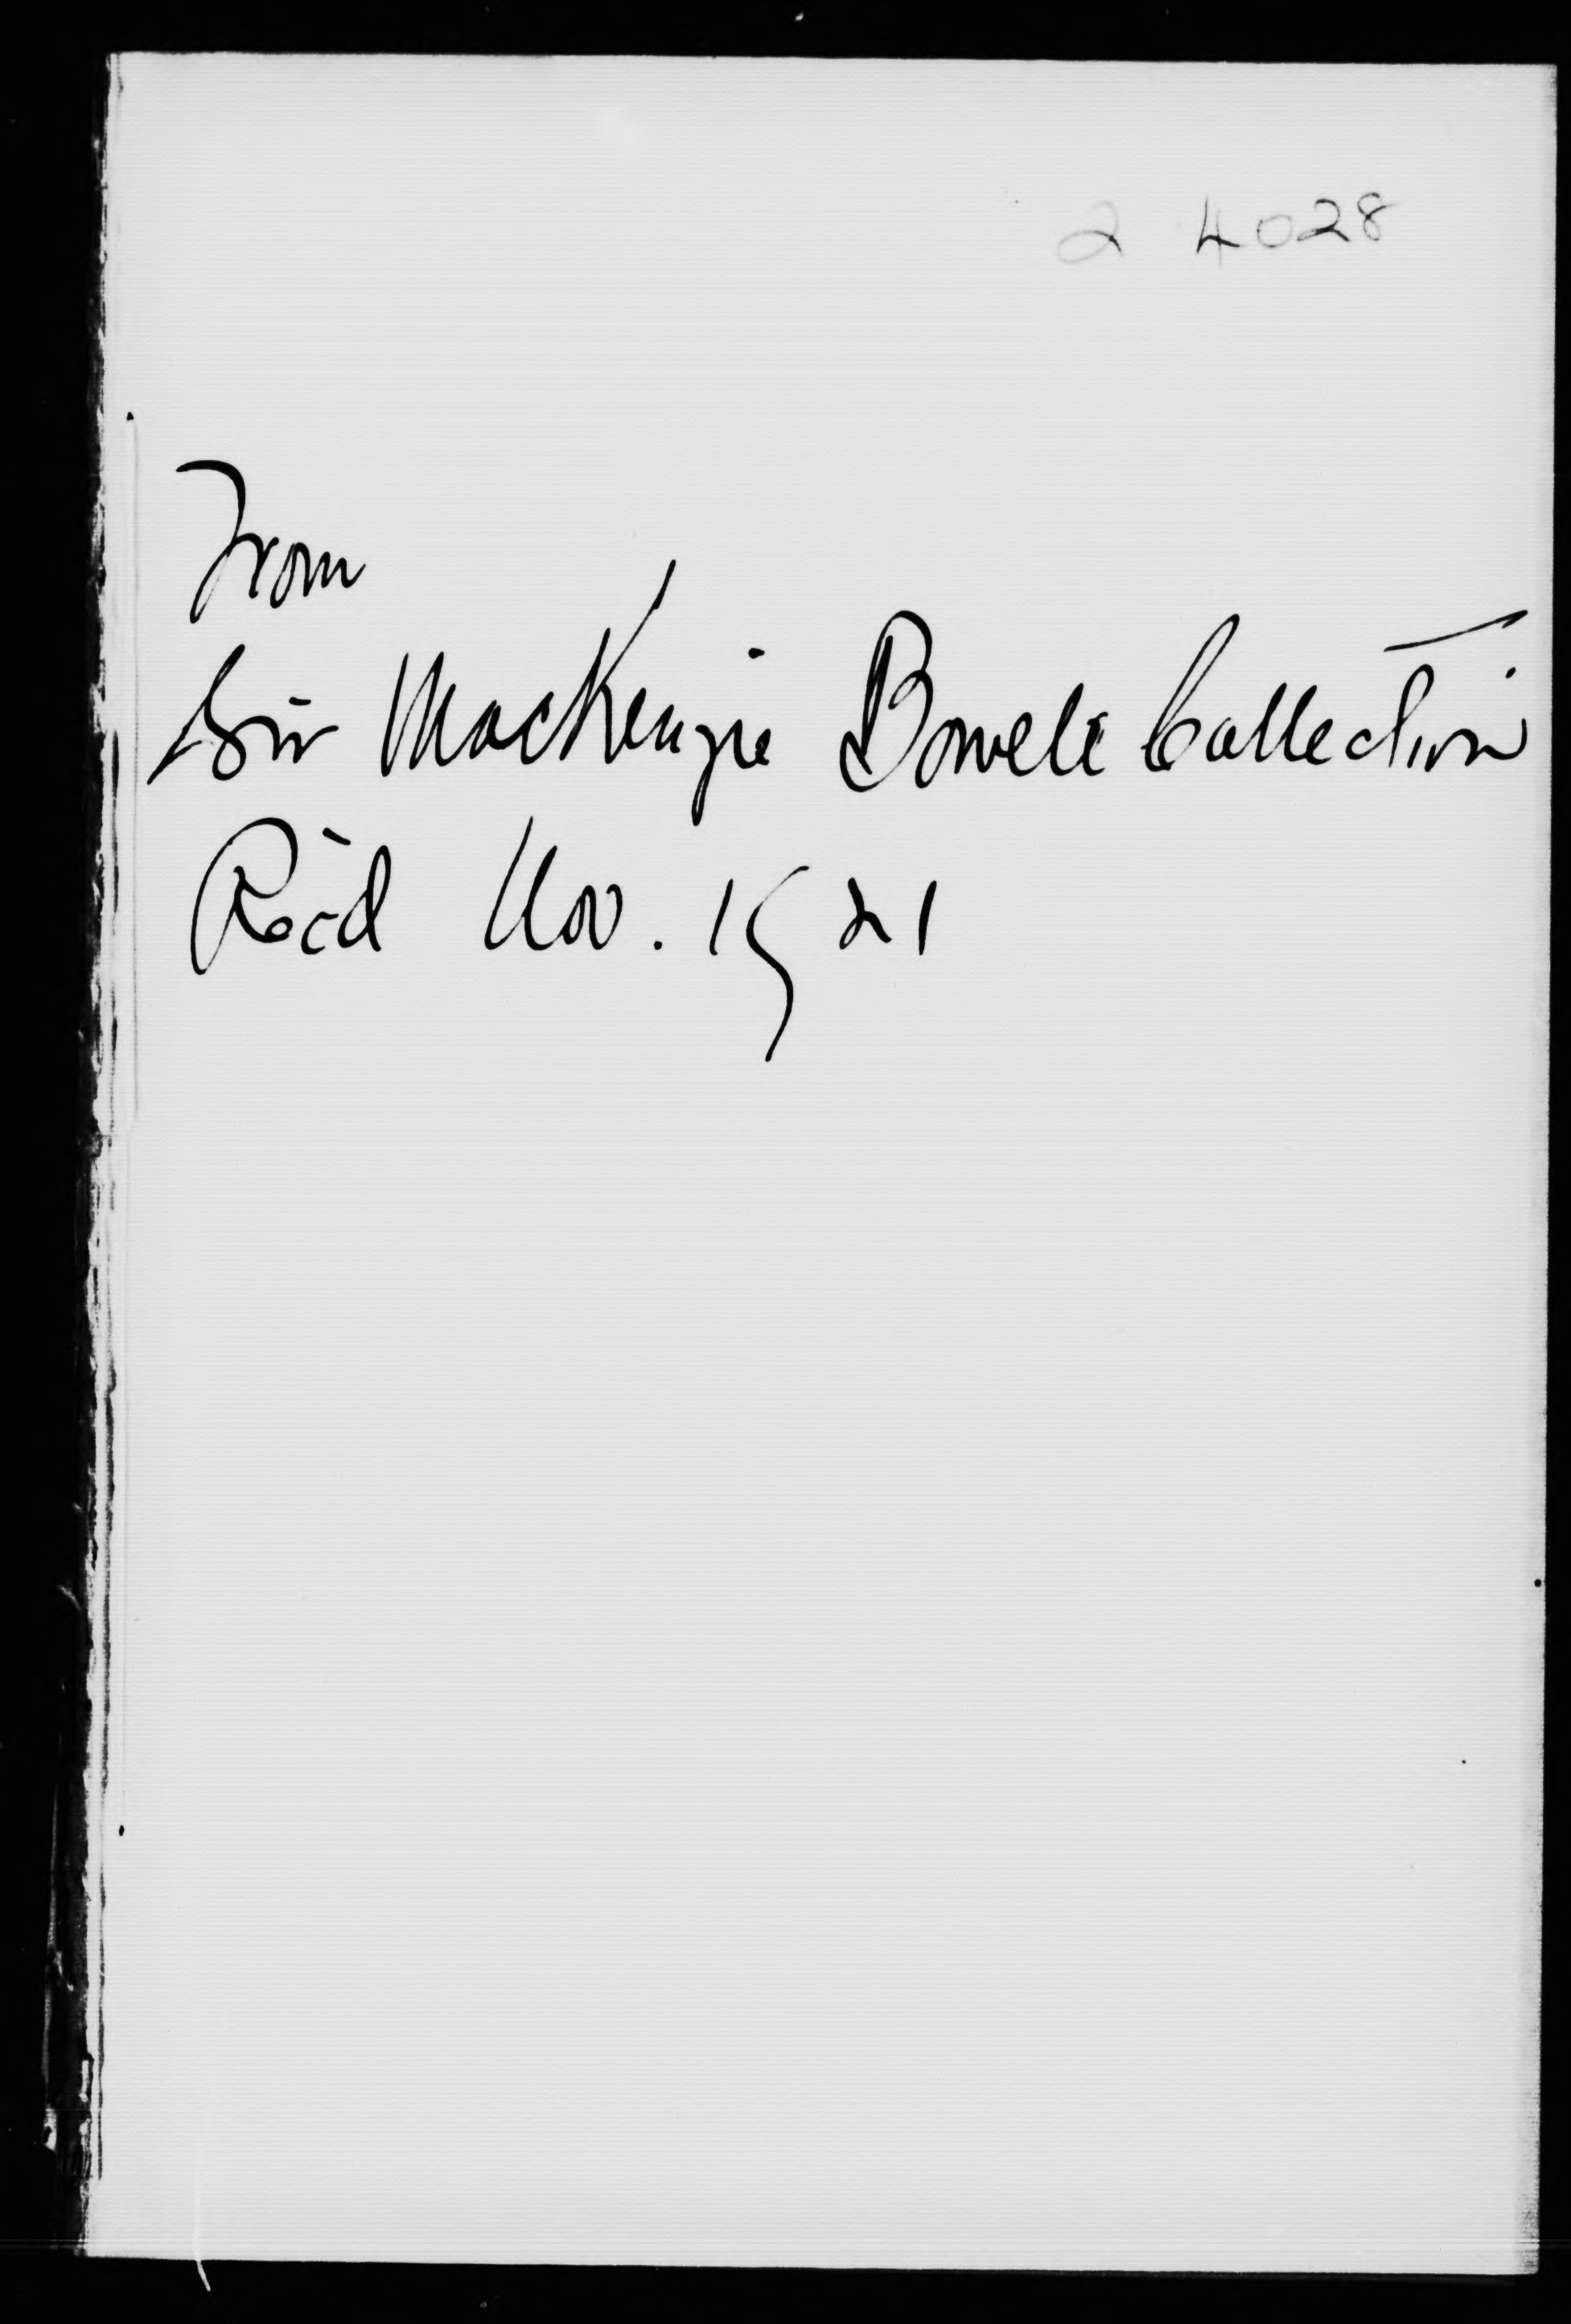 2 4028
From
Sir MacKenzie Bowell Collection
Rec'd Nov. 1921